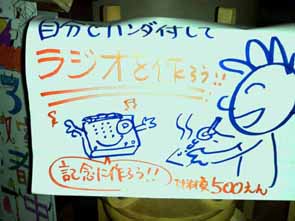 自分でハンダ付して
ラジオを作ろう!!
記念に作ろう!!
材料費500えん